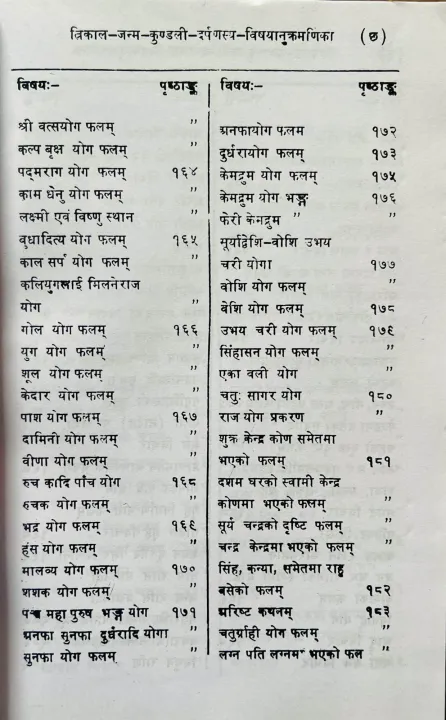 त्रिकाल-जन्म-कुण्डली-दर्पणस्य-विषयानुक्रमणिका (छ)
विषयः- पृष्ठाङ्क
श्री वत्सयोग फलम् "
कल्प बृक्ष योग फलम् "
पद्मराग योग फलम् १६४
काम धेनु योग फलम् "
लक्ष्मी एवं विष्णु स्थान "
वुधादित्य योग फलम् १६५
काल सर्प योग फलम् "
कलियुगलाई मिलनेराज
योग "
गोल योग फलम् १६६
युग योग फलम् "
शूल योग फलम् "
केदार योग फलम् "
पाश योग फलम् १६७
दामिनी योग फलम् "
वीणा योग फलम् "
रुच कादि पाँच योग १६८
रुचक योग फलम् "
भद्र योग फलम् १६९
हंस योग फलम् "
मालव्य योग फलम् १७०
शशक योग फलम् "
पञ्च महा पुरुष भङ्ग योग १७१
अनफा सुनफा दुर्धरादि योगा
सुनफा योग फलम् "
विषयः- पृष्ठाङ्क
अनफायोग फलम १७२
दुर्धरायोग फलम् १७३
केमद्रुम योग फलम् १७५
केमद्रुम योग भङ्ग १७६
फेरी केमद्रुम " "
सूर्याद्वेशि-वोशि उभय
चरी योगा १७७
वोशि योग फलम् "
वेशि योग फलम् १७८
उभय चरी योग फलम् १७९
सिंहासन योग फलम् "
एका वली योग "
चतुः सागर योग १८०
राज योग प्रकरण "
शुक्र केन्द्र कोण समेतमा
भएको फलम् १८१
दशम घरको स्वामी केन्द्र
कोणमा भएको फलम् "
सूर्य चन्द्रको दृष्टि फलम् "
चन्द्र केन्द्रमा भएको फलम् "
सिंह, कन्या, समेतमा राहु
बसेको फलम् १८२
अरिष्ट कथनम् १८३
चतुर्ग्राही योग फलम् "
लग्न पति लग्नमा भएको फल "